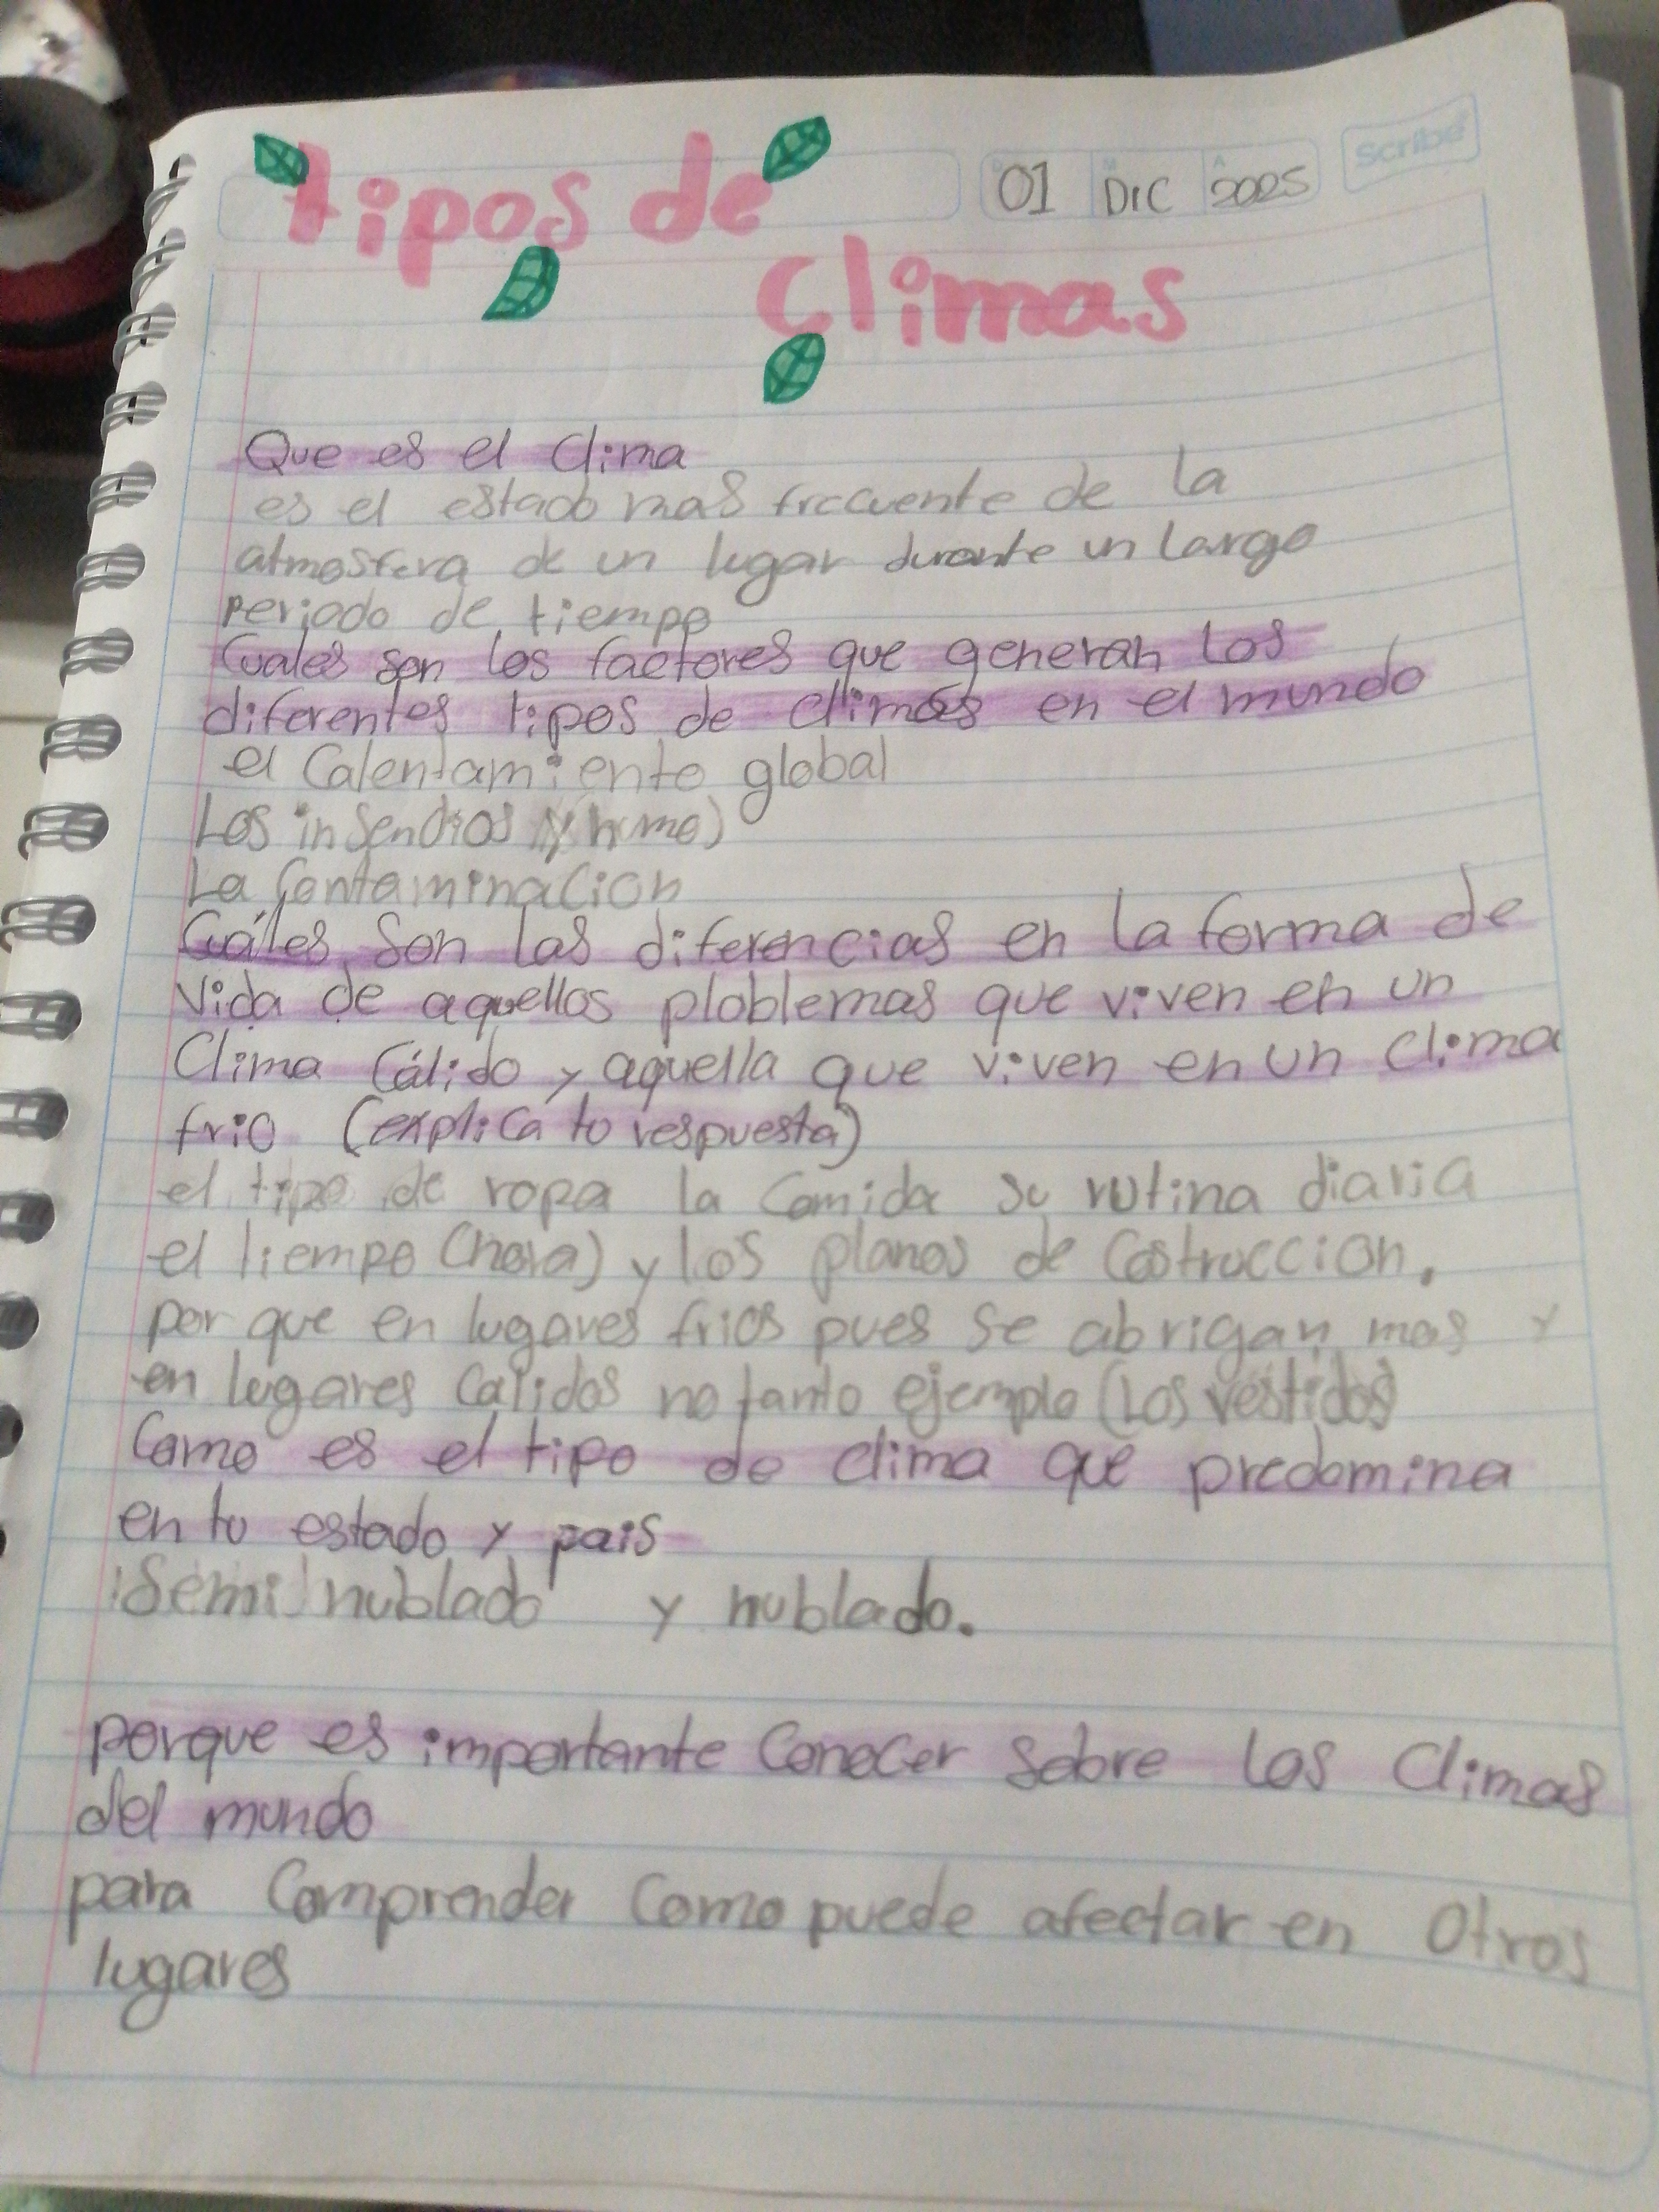 tipos de
01 DIC 2025
scribe
Climas
Que es el clima
es el estado mas frecuente de la
atmosfera de un lugar durante un largo
periodo de tiempo
Cuales son los factores que generan los
diferentes tipos de climas en el mundo
el Calentamiento global
Los insendios y (humo)
La Contaminacion
Cuáles son las diferencias en la forma de
vida de aquellos ploblemas que viven en un
Clima Cálido y aquella que viven en un clima
frio (explica tu respuesta)
el tipo de ropa la Comida su rutina diaria
el tiempo (hora) y los planos de Costruccion.
por que en lugares frios pues se abrigan mas y
en lugares Calidos no tanto ejemplo (Los vestidos)
Como es el tipo de clima que predomina
en tu estado y pais
Semi nublado y nublado.
porque es importante Conocer sobre los Climas
del mundo
para Comprender Como puede afectar en Otros
lugares